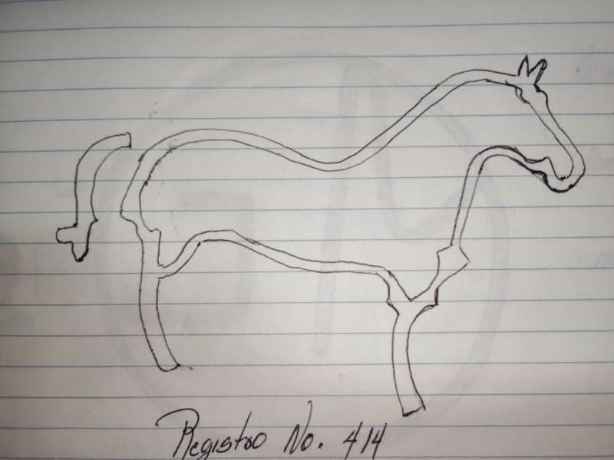 Registro No. 414